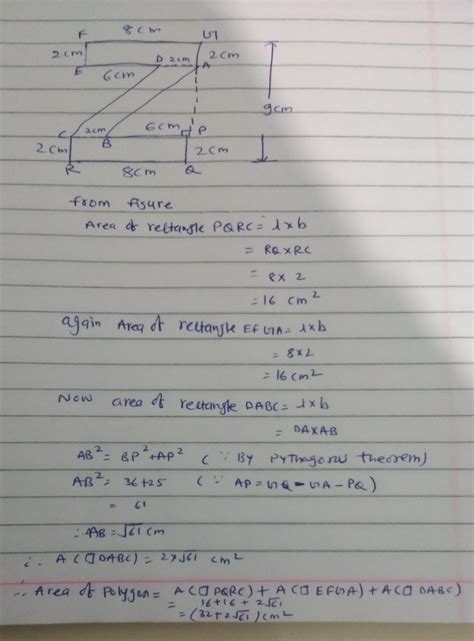 F 8cm G
2cm D 2cm A 2cm
E 6cm
9cm
C 2cm B 6cm P
2cm 2cm
R 8cm Q
from figure
Area of rectangle PQRC = l×b
= RQ×RC
= 8×2
= 16 cm²
again Area of rectangle EFGA = l×b
= 8×2
= 16 cm²
Now area of rectangle DABC = l×b
= DA×AB
AB² = BP²+AP² (∵ By Pythagorus theorem)
AB² = 36+25 (∵ AP = GQ - GA - PQ)
= 61
∴ AB = √61 cm
∴ A(□DABC) = 2×√61 cm²
∴ Area of Polygon = A(□PQRC) + A(□EFGA) + A(□DABC)
= 16+16+2√61
= (32+2√61) cm²